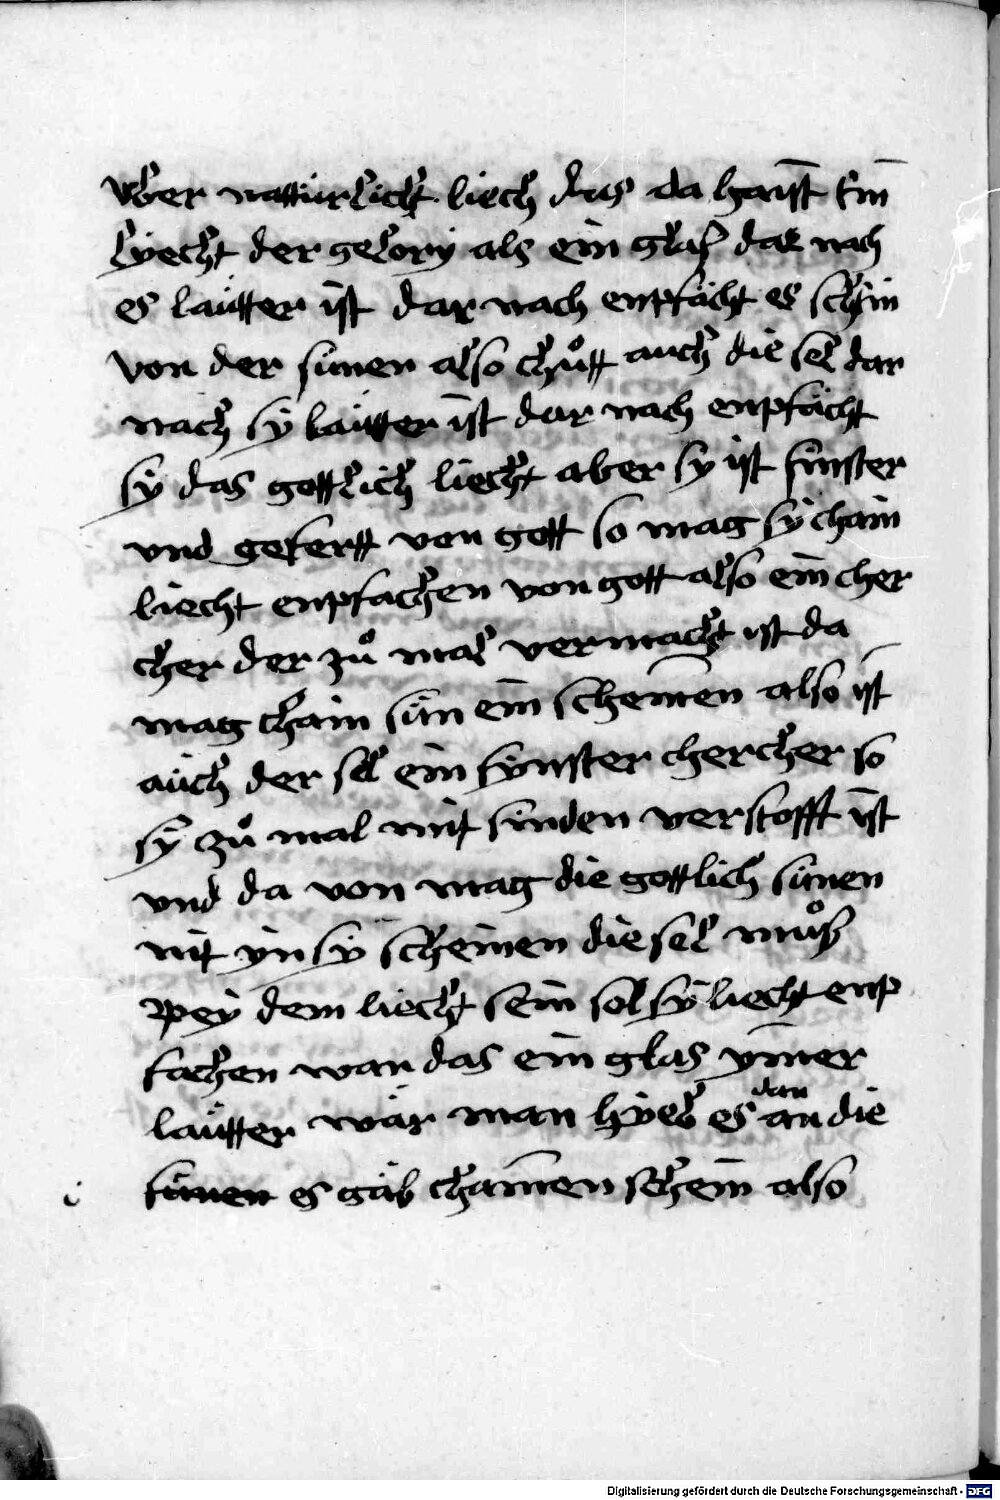 vber natturlicht liech das da haist Ein
lyecht der gelory als ein glas dar nach
es lautter ist dar nach enpfächt es schein
von der sunen also thuͦtt auch die sel dar
nach sy lautter ist dar nach enpfächt
sy das gottlich liecht aber sy ist finster
vnd gefertt von gott so mag sy chain
liecht enpfachen von gott also ein cher
cher der zuͦ mal vermacht ist da
mag chain sun ein scheinen also ist
auch der sel ein fynster chercher so
sy zuͦ mal mit sunden verstofft ist
vnd da von mag die gottlich sunen
nit yn sy scheinen die sel muͦß
pey dem liecht sein sol sy liecht enp
fachen wan das ein glas ymer
lautter wär man hyel es dan an die
sunen es gäb chainen schein also
Digitalisierung gefördert durch die Deutsche Forschungsgemeinschaft - DFG